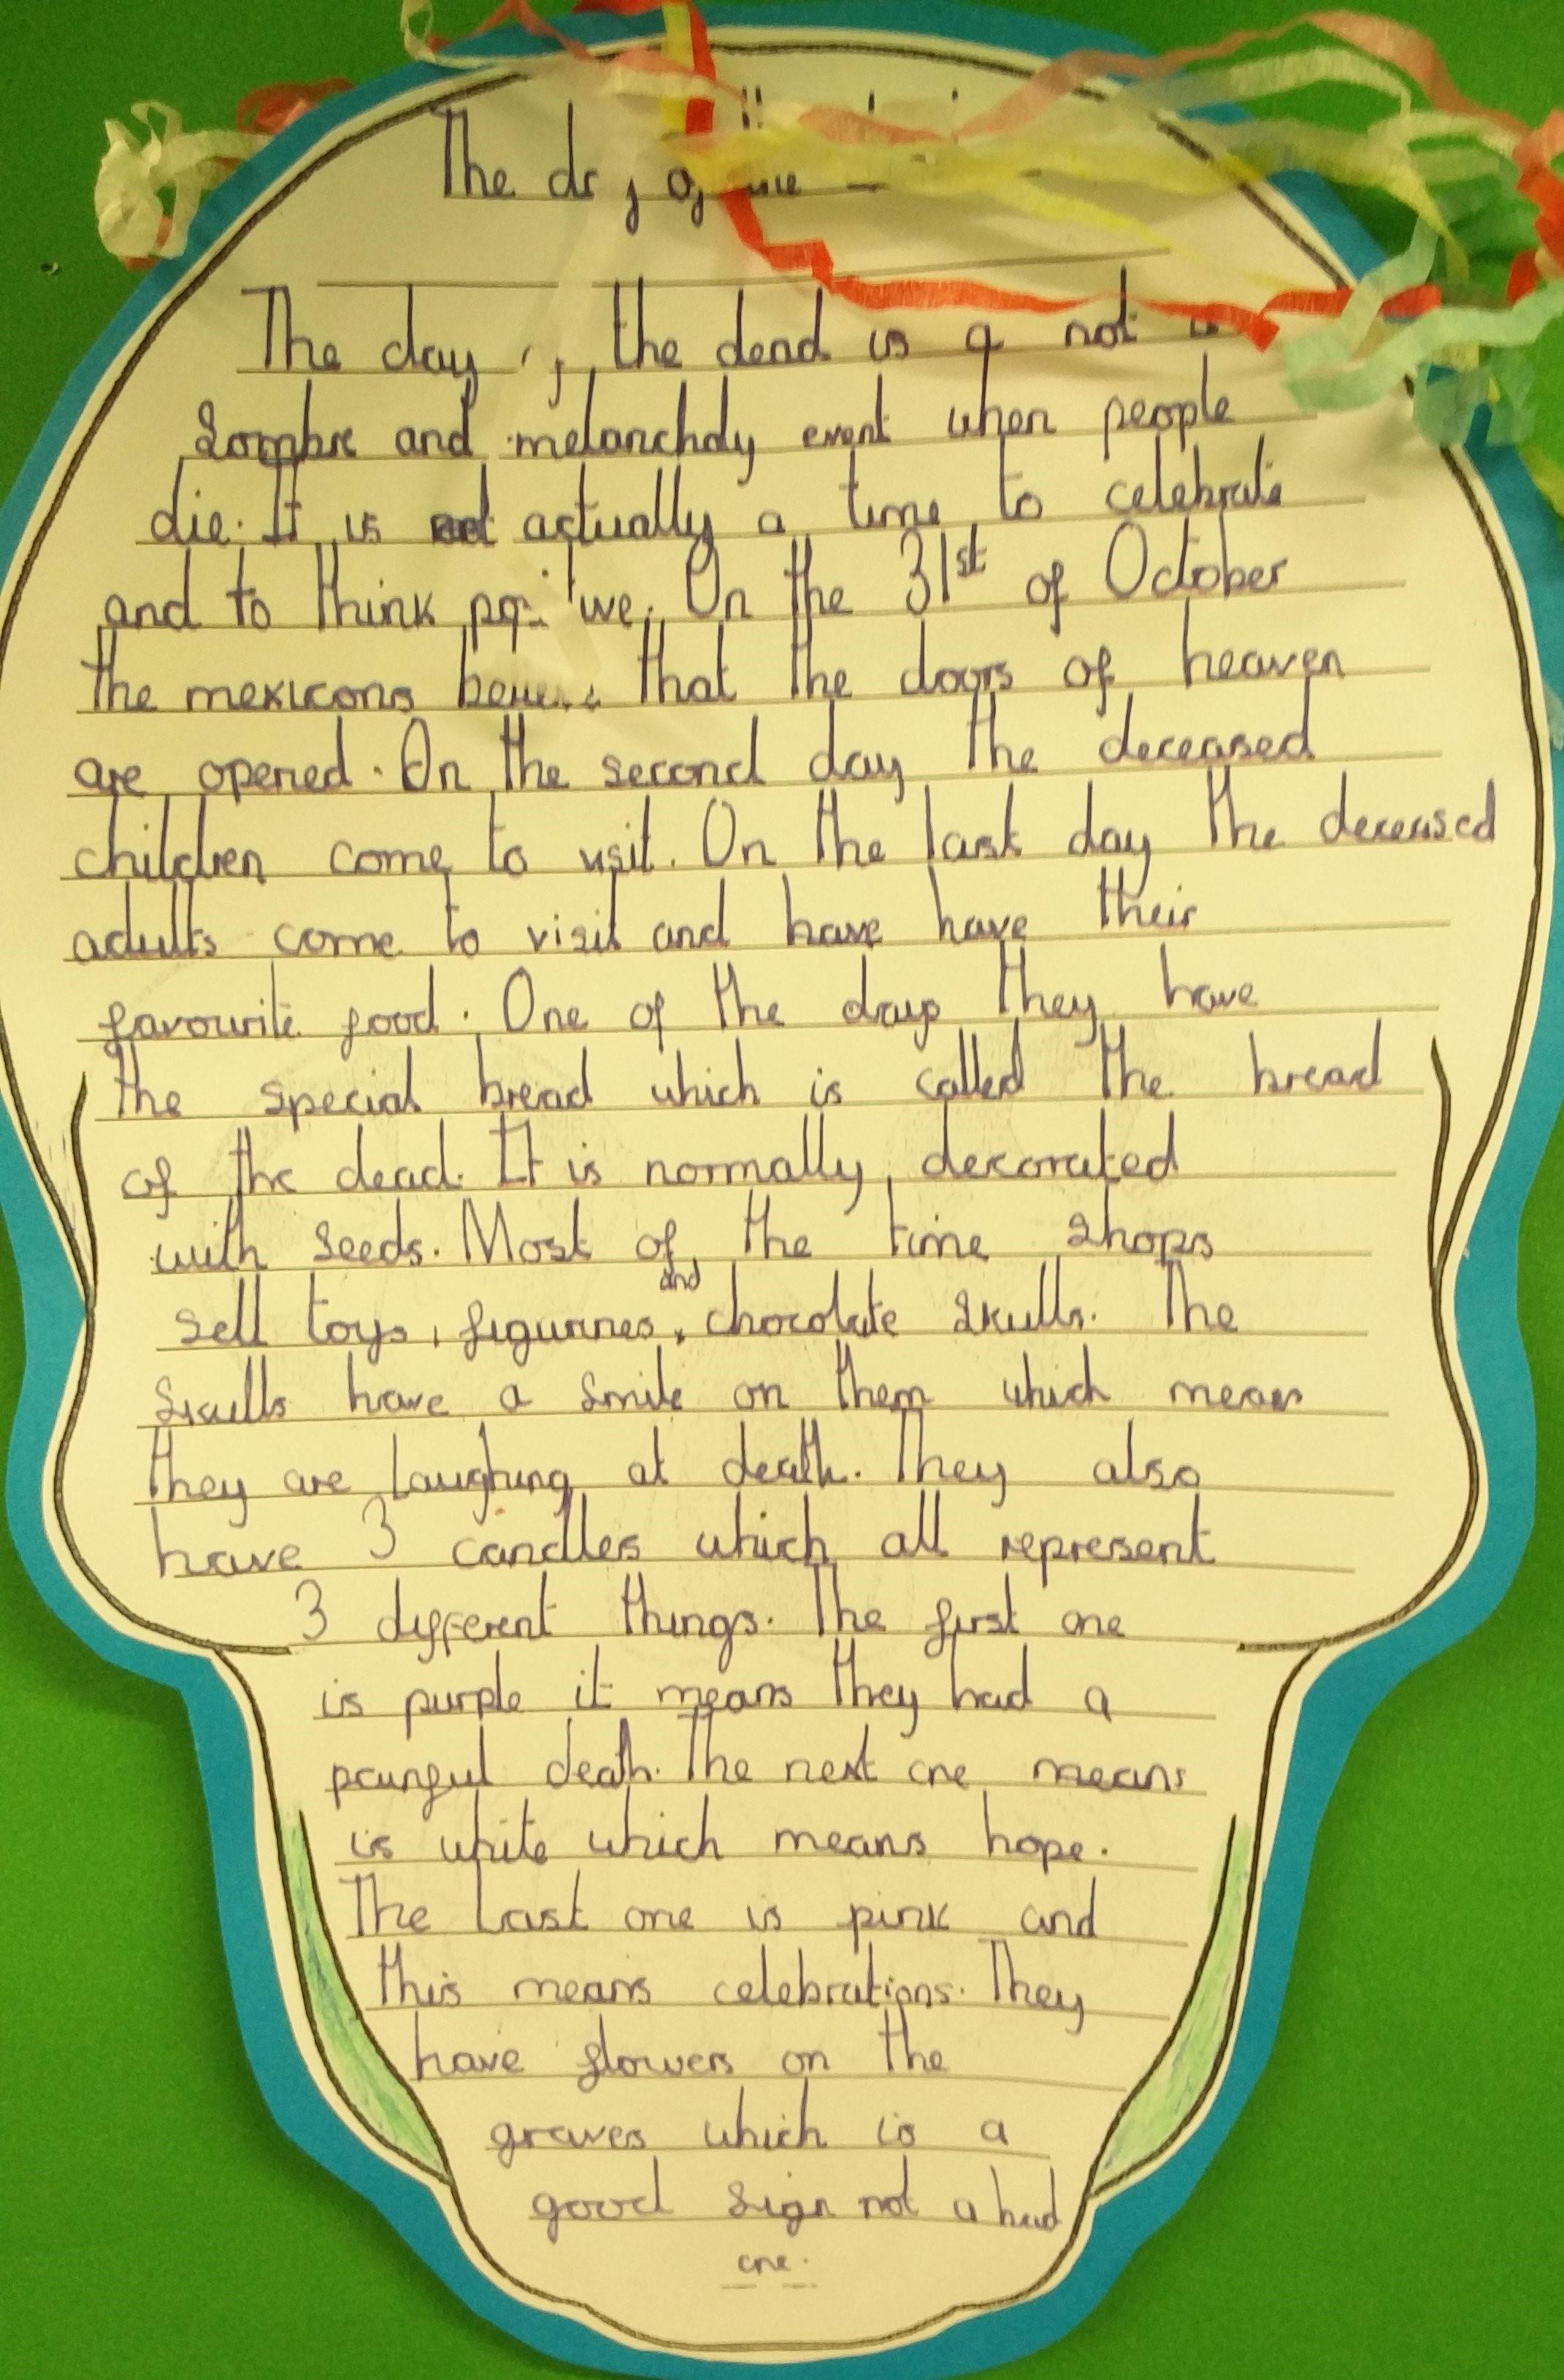 The day of the
The day of the dead is a not a
sombre and melancholy event when people
die. It is actually a time to celebrate
and to think positive. On the 31st of October
the mexicans believe that the doors of heaven
are opened. On the second day the deceased
children come to visit. On the last day the deceased
adults come to visit and have have their
favourite food. One of the days they have
the special bread which is called the bread
of the dead. It is normally decorated
with seeds. Most of the time shops
sell toys, figurines and chocolate skulls. The
skulls have a smile on them which means
they are laughing at death. They also
have 3 candles which all represent
3 different things. The first one
is purple it means they had a
painful death. The next one means
is white which means hope.
The last one is pink and
this means celebrations. They
have flowers on the
graves which is a
good sign not a bad
one.